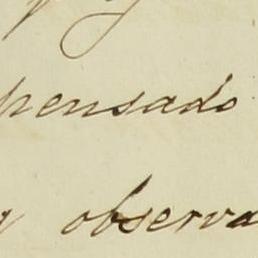 pensado
y observa